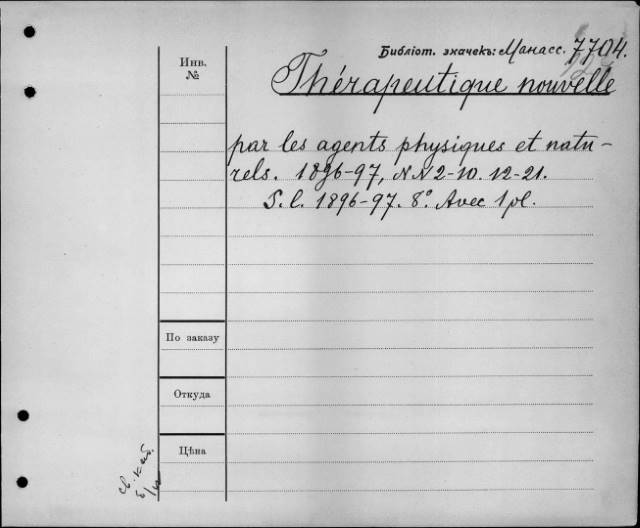 Библіот. значекъ: Манасс. 7704.
Инв.
№
Thérapeutique nouvelle
par les agents physiques et natu-
rels. 1896-97, NN 2-10. 12-21.
S. l. 1896-97. 8°. Avec 1 pl.
По заказу
Откуда
Цѣна